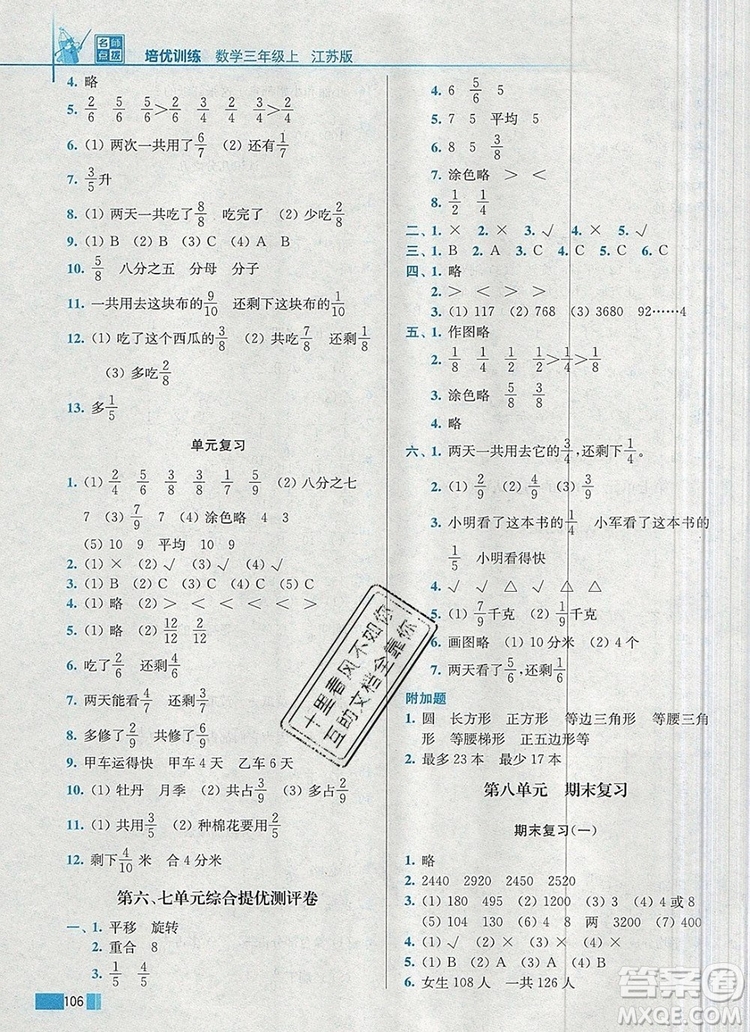 名师点拨 培优训练 数学三年级上 江苏版
4. 略
5. 2/6 5/6 5/6>2/6 3/4 2/4 3/4>2/4
6. (1) 两次一共用了6/7 (2) 还有1/7
7. 3/5升
8. (1) 两天一共吃了8/8 吃完了 (2) 少吃2/8
9. (1) B (2) B (3) C (4) A B
10. 5/8 八分之五 分母 分子
11. 一共用去这块布的9/10 还剩下这块布的1/10
12. (1) 吃了这个西瓜的3/8 (2) 共吃7/8 还剩1/8
(3) 多吃2/8
13. 多1/5
单元复习
1. (1) 2/4 5/6 3/8 1/3 1/7 5/9 (2) 八分之七
7 (3) 7/9 7 (4) 涂色略 4 3
(5) 10 9 平均 10 9
2. (1) √ (2) × (3) √ (4) √
3. (1) B (2) C (3) A (4) C (5) C
4. (1) 略 (2) > < < > < >
5. (1) 略 (2) 12/12 12/12 2/12
6. 吃了2/9 还剩4/9
7. 两天能看4/7 还剩3/7
8. 多修了2/9 共修了6/9
9. 甲车运得快 甲车 4 天 乙车 6 天
10. (1) 牡丹 月季 (2) 共占3/9
11. (1) 共用3/5 (2) 种棉花要用2/5
12. 剩下4/10 米 合 4 分米
第六、七单元综合提优测评卷
一、1. 平移 旋转
2. 重合 8
3. 1/5 4/5
106
4. 6 5/6 5
5. 7 5 平均 5
6. 8 5 3/8
7. 涂色略 > <
8. 1/2 1/4
二、1. × 2. × 3. √ 4. × 5. √
三、1. B 2. A 3. C 4. C 5. C
四、1. 略
2. > < > >
3. (1) 117 (2) 768 (3) 3680 92……4
五、1. 作图略
2. 1/8 1/4 1/4 1/2 1/2>1/8
3. 涂色略 5/8 3/8
4. 略
六、1. 两天一共用去它的3/4,还剩下1/4。
2. (1) 2/9 (2) 4/9 (3) 3/9
3. 小明看了这本书的1/4 小军看了这本书的
1/5 小明看得快
4. √ √ △ √ △
5. (1) 7/9千克 (2) 1/9千克
6. 画图略 (1) 10 分米 (2) 10 厘米
7. 两天看了5/6,还剩下1/6
附加题
1. 圆 长方形 正方形 等边三角形 等腰三角
形 等腰梯形 正五边形等
2. 最多 23 本 最少 17 本
第八单元 期末复习
期末复习(一)
1. 略
2. 2440 2920 2450 4520
3. (1) 180 (2) 495 (3) 312 (4) 6 或 8
(5) 104 130 (6) 8 4 两 3200 (7) 4
4. (1) √ (2) × (3) × (4) ×
5. (1) C (2) A (3) A (4) B
6. 女生 108 人 一共 126 人
十里春风不如你
互助文档全靠你
答案圈
MXQE.COM